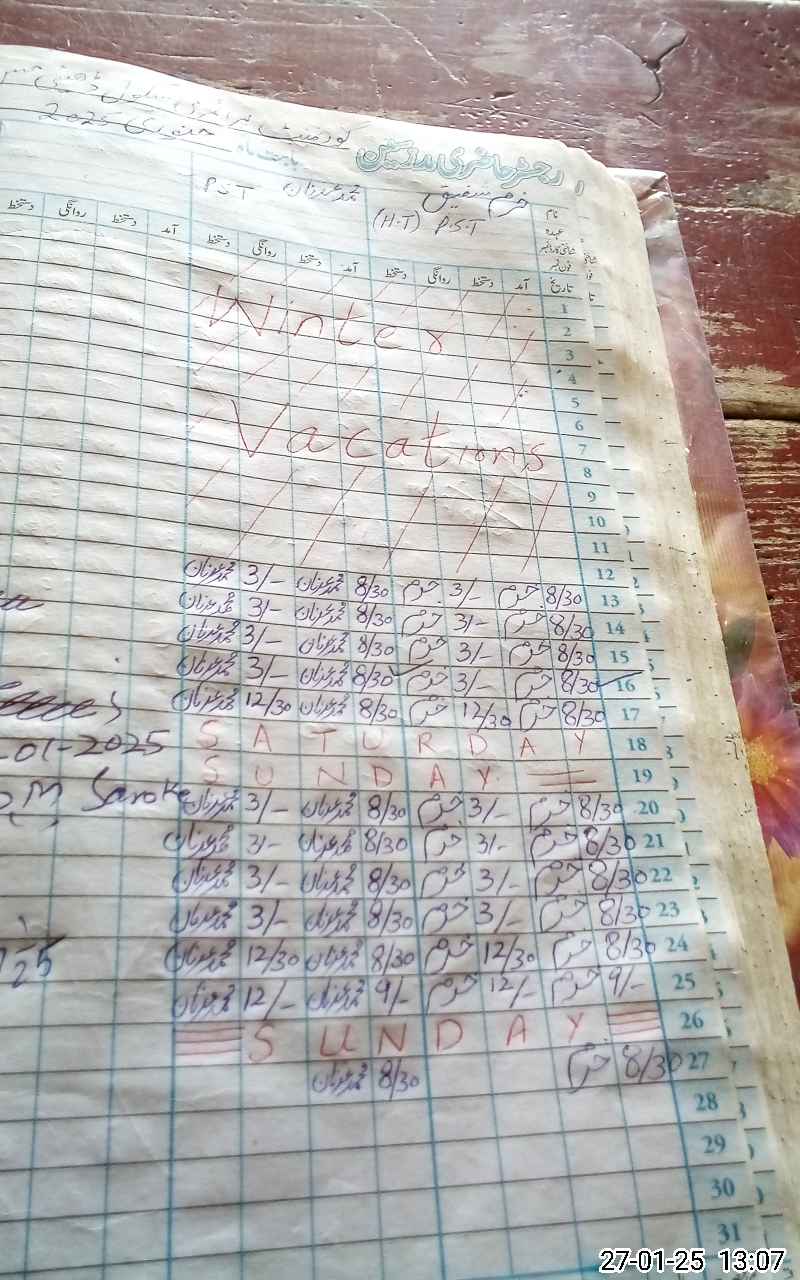 رجسٹر حاضری مدرسین
گورنمنٹ پرائمری سکول
بابت ماہ جنوری 2025
نام خرم شفیق محمد عدنان P.S.T
عہدہ P.S.T (H.T)
شناختی کارڈ نمبر
فون نمبر
تاریخ آمد دستخط روانگی دستخط آمد دستخط روانگی دستخط آمد دستخط روانگی دستخط
1
2 Winter
3
4
5
6
7 Vacations
8
9
10
11
12
13 8/30 خرم 3/- خرم 8/30 محمد عدنان 3/- محمد عدنان
14 8/30 خرم 3/- خرم 8/30 محمد عدنان 3/- محمد عدنان
15 8/30 خرم 3/- خرم 8/30 محمد عدنان 3/- محمد عدنان
16 8/30 خرم 3/- خرم 8/30 محمد عدنان 3/- محمد عدنان
17 8/30 خرم 12/30 خرم 8/30 محمد عدنان 12/30 محمد عدنان
18 SATURDAY
-01-2025
19 SUNDAY
Saroke
20 8/30 خرم 3/- خرم 8/30 محمد عدنان 3/- محمد عدنان
21 8/30 خرم 3/- خرم 8/30 محمد عدنان 3/- محمد عدنان
22 8/30 خرم 3/- خرم 8/30 محمد عدنان 3/- محمد عدنان
23 8/30 خرم 3/- خرم 8/30 محمد عدنان 3/- محمد عدنان
24 8/30 خرم 12/30 خرم 8/30 محمد عدنان 12/30 محمد عدنان
25 9/- خرم 12/- خرم 9/- محمد عدنان 12/- محمد عدنان
26 SUNDAY
27 8/30 خرم 8/30 محمد عدنان
28
29
30
31
27-01-25 13:07